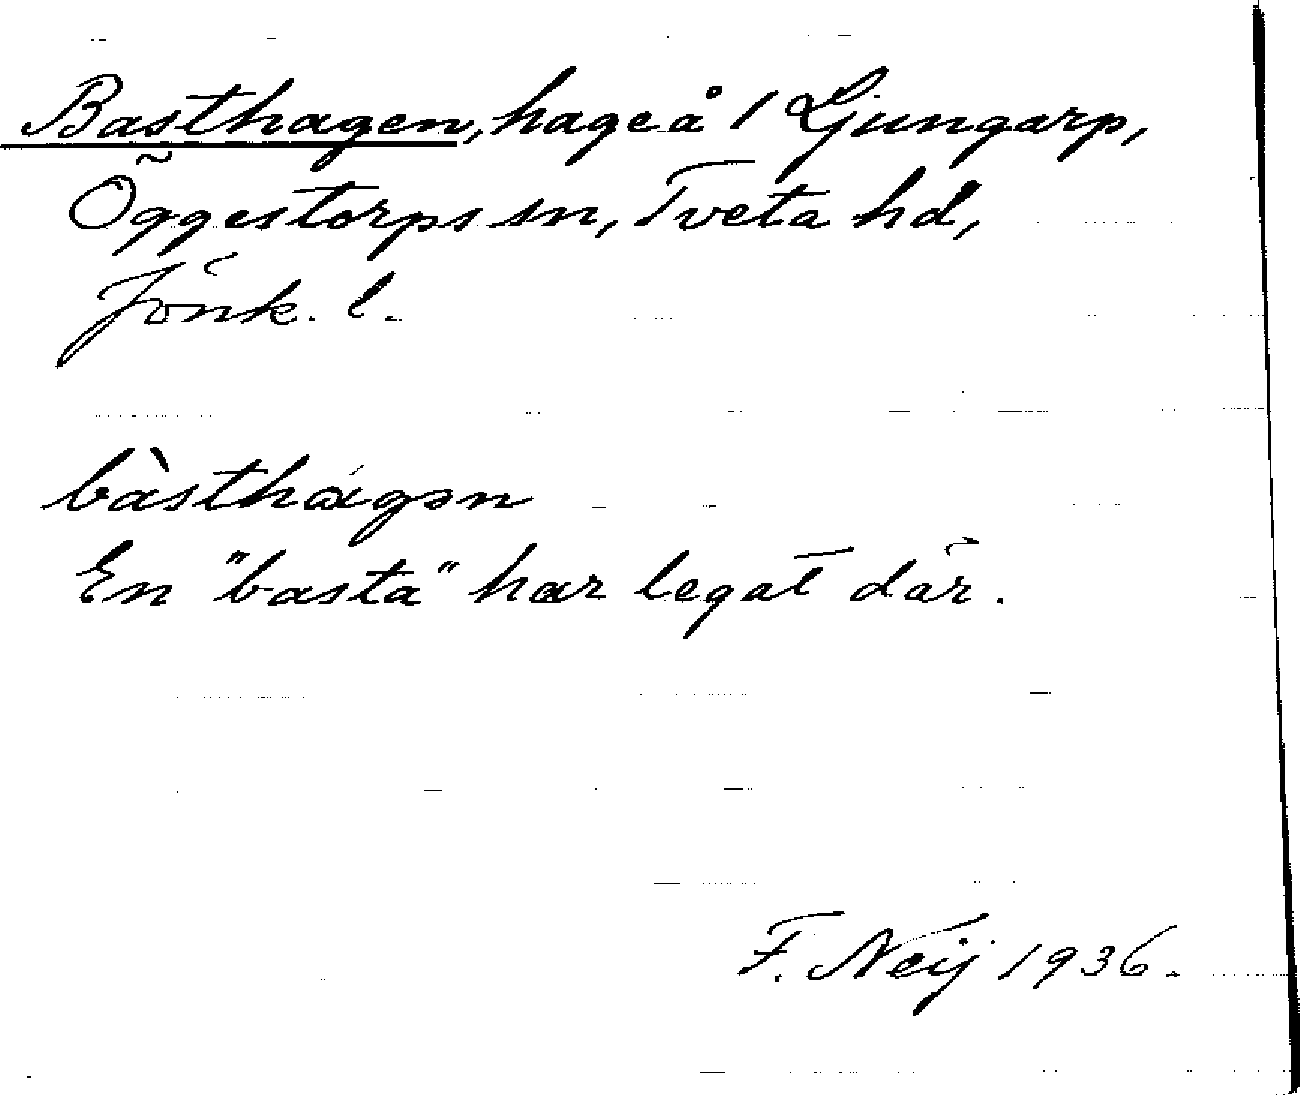 Basthagen, hage å 1 Ljungarp,
Öggestorps sn, Tveta hd,
Jönk. l.
bàsthágən
En "basta" har legat där.
F. Neij 1936.